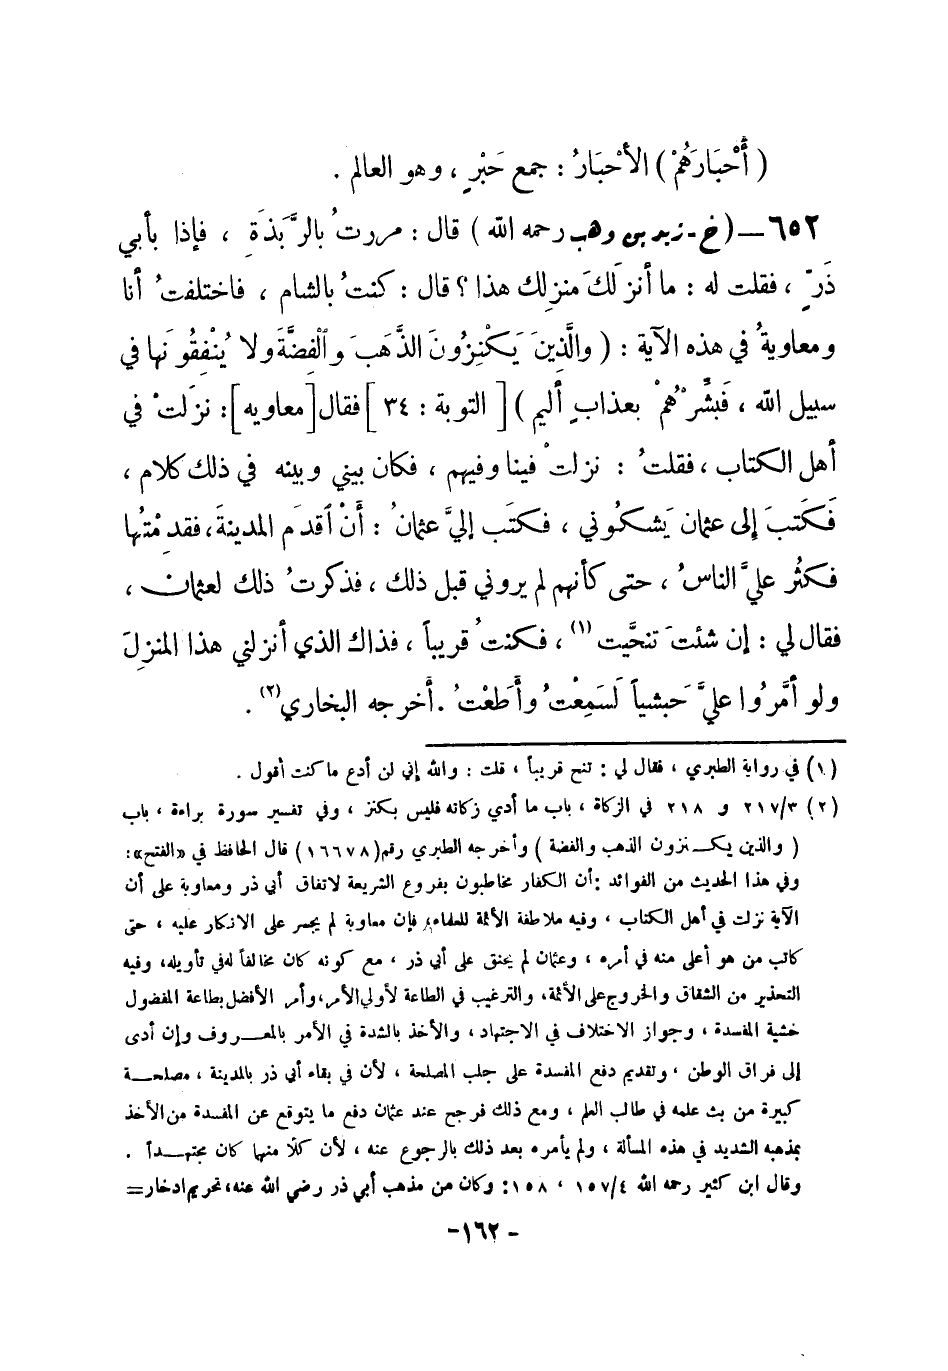 ( أَحْبَارَهُمْ ) الأحْبَارُ : جمع حَبْرٍ ، وهو العالم .
٦٥٢ – ( خ - زيد بن وهب رحمه الله ) قال : مررتُ بالرَّبَذَةِ ، فإذا بأبي
ذَرٍّ ، فقلت له : ما أنزلَكَ مَنزِلك هذا ؟ قال : كنتُ بالشام ، فاختلفتُ أنا
ومعاويةُ في هذه الآية : ( والَّذِينَ يَكْنِزُونَ الذَّهَبَ وَالْفِضَّةَ ولا يُنْفِقُونَها في
سبيل الله ، فَبَشِّرْهُمْ بعذابٍ أليم ) [ التوبة : ٣٤ ] فقال [معاويه] : نزَلتْ في
أهل الكتاب ، فقلتُ : نزلتْ فينا وفيهم ، فكان بيني وبينه في ذلك كلام ،
فَكَتَبَ إلى عثمان يَشكُوني ، فكتَب إليَّ عثمانُ : أَنْ اقدَم المدينةَ ، فقدِمْتُها
فكثُر عليَّ الناسُ ، حتى كأنهم لم يروني قبل ذلك ، فذكرتُ ذلك لعثمان ،
فقال لي : إن شئتَ تنحَّيت (١) ، فكنتُ قريباً ، فذاك الذي أنزلني هذا المنزِلَ
ولو أمَّرُوا عليَّ حَبشياً لَسَمِعْتُ وأَطَعْتُ . أخرجه البخاري (٢) .
(١) في رواية الطبري ، فقال لي : تنح قريباً ، قلت : والله إني لن أدع ما كنت أقول .
(٢) ٢١٧/٣ و ٢١٨ في الزكاة ، باب ما أدي زكاته فليس بكنز ، وفي تفسير سورة براءة ، باب
( والذين يكنزون الذهب والفضة ) وأخرجه الطبري رقم (١٦٦٧٨) قال الحافظ في «الفتح» :
وفي هذا الحديث من الفوائد : أن الكفار مخاطبون بفروع الشريعة لاتفاق أبي ذر ومعاوية على أن
الآية نزلت في أهل الكتاب ، وفيه ملاطفة الأئمة للعلماء، فإن معاوية لم يجسر على الانكار عليه ، حتى
كاتب من هو أعلى منه في أمره ، وعثمان لم يحنق على أبي ذر ، مع كونه كان مخالفاً له في تأويله، وفيه
التحذير من الشقاق والخروج على الأئمة، والترغيب في الطاعة لأولي الأمر، وأمر الأفضل بطاعة المفضول
خشية المفسدة ، وجواز الاختلاف في الاجتهاد ، والأخذ بالشدة في الأمر بالمعروف وإن أدى
إلى فراق الوطن ، وتقديم دفع المفسدة على جلب المصلحة ، لأن في بقاء أبي ذر بالمدينة ، مصلحة
كبيرة من بث علمه في طالب العلم ، ومع ذلك فرجح عند عثمان دفع ما يتوقع عن المفسدة من الأخذ
بمذهبه الشديد في هذه المسألة ، ولم يأمره بعد ذلك بالرجوع عنه ، لأن كلًا منهما كان مجتهداً .
وقال ابن كثير رحمه الله ١٥٧/٤ ، ١٥٨ : وكان من مذهب أبي ذر رضي الله عنه، تحريم ادخار=
- ١٦٢-